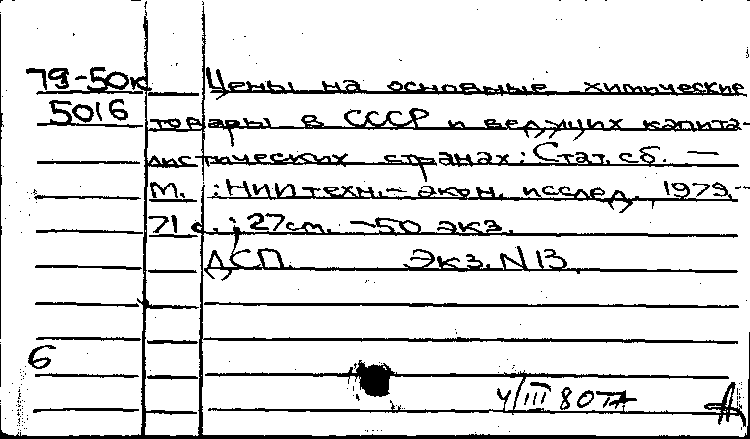 79-50к Цены на основные химические
5016 товары в СССР и ведущих капита-
листических странах: Стат. сб. —
М.: НИИ техн.-экон. исслед., 1979.—
71 с.; 27 см. —50 экз.
ДСП. Экз. N 13.
6
4/III 80